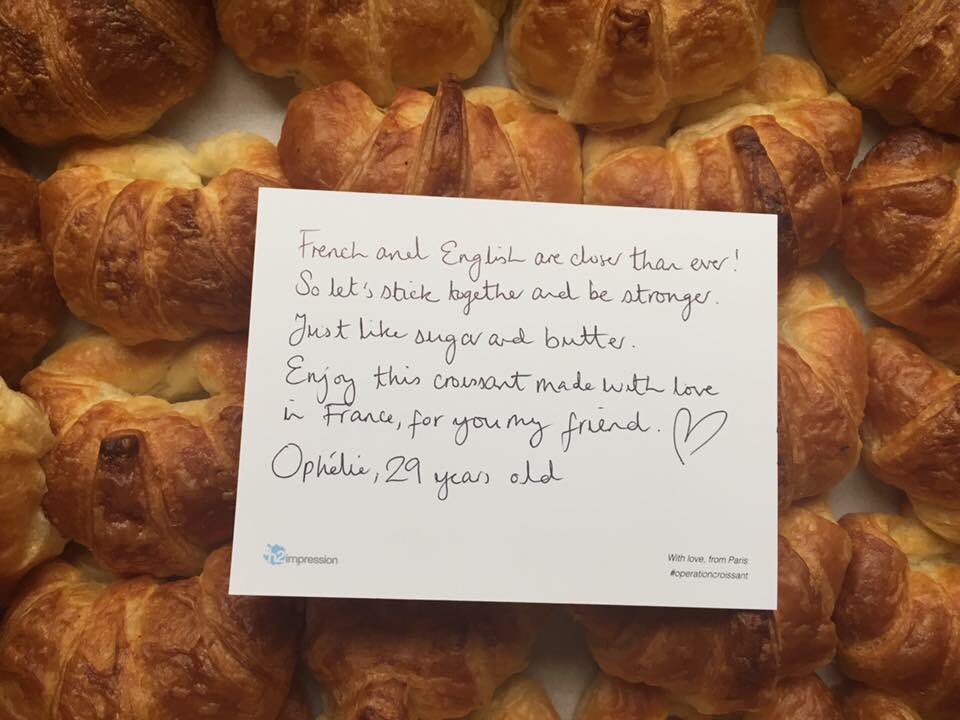 French and English are closer than ever!
So let's stick together and be stronger.
Just like sugar and butter.
Enjoy this croissant made with love
in France, for you my friend.
Ophélie, 29 years old
h2impression
With love, from Paris
#operationcroissant